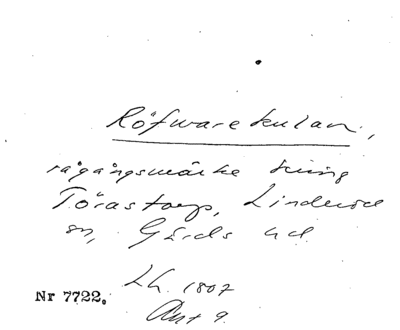 Röfwarekulan,
rågångsmärke kring
Törastorp, Linderöd
sn, Gärds hd.
Lh. 1807
Akt 9.
Nr 7722.